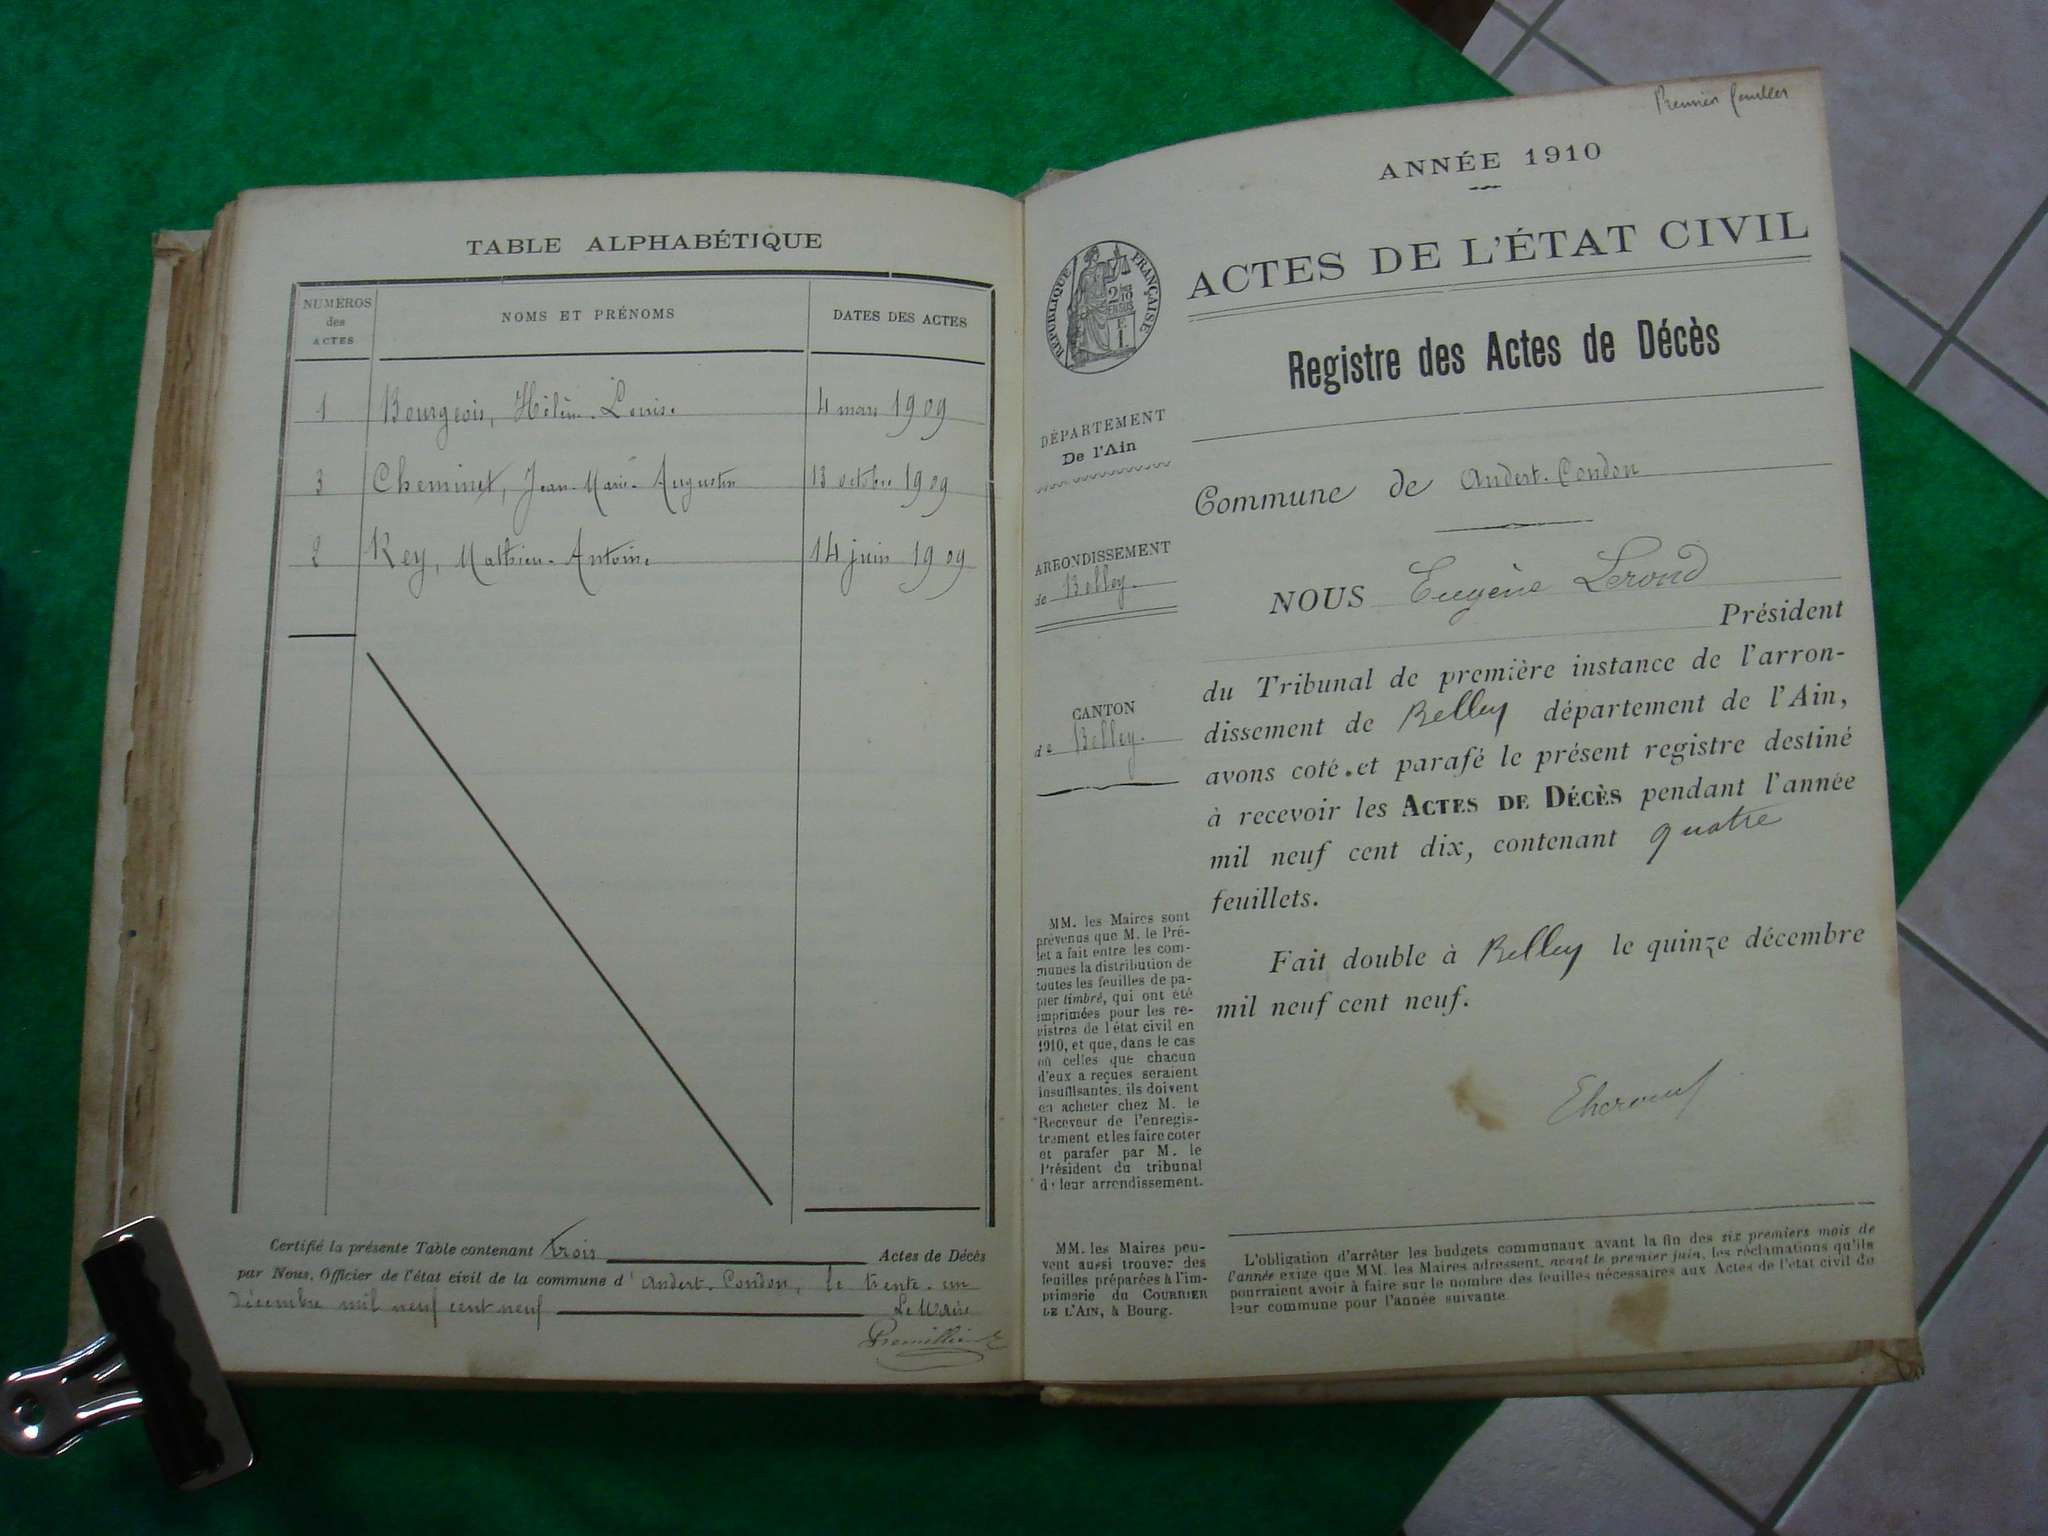 TABLE ALPHABÉTIQUE
NUMÉROS des ACTES
NOMS ET PRÉNOMS
DATES DES ACTES
1 Bourgeois, Hélène-Louise 4 mars 1909
3 Cheminet, Jean-Marie-Augustin 13 octobre 1909
2 Rey, Mathieu-Antoine 14 juin 1909
Certifié la présente Table contenant trois Actes de Décès
par Nous, Officier de l'état civil de la commune d'Andert-Condon, le trente-un
décembre mil neuf cent neuf Le Maire
Premier feuillet
ANNÉE 1910
ACTES DE L'ÉTAT CIVIL
RÉPUBLIQUE FRANÇAISE
Registre des Actes de Décès
DÉPARTEMENT
De l'Ain
ARRONDISSEMENT
de Belley.
CANTON
de Belley.
MM. les Maires sont
prévenus que M. le Pré-
fet a fait entre les com-
munes la distribution de
toutes les feuilles de pa-
pier timbré, qui ont été
imprimées pour les re-
gistres de l'état civil en
1910, et que, dans le cas
où celles que chacun
d'eux a reçues seraient
insuffisantes, ils doivent
en acheter chez M. le
Receveur de l'enregis-
trement et les faire coter
et parafer par M. le
Président du tribunal
de leur arrondissement.
MM. les Maires peu-
vent aussi trouver des
feuilles préparées à l'im-
primerie du COURRIER
DE L'AIN, à Bourg.
Commune de Andert-Condon
NOUS Eugène Lerond
Président
du Tribunal de première instance de l'arron-
dissement de Belley département de l'Ain,
avons coté et parafé le présent registre destiné
à recevoir les ACTES DE DÉCÈS pendant l'année
mil neuf cent dix, contenant quatre
feuillets.
Fait double à Belley le quinze décembre
mil neuf cent neuf.
L'obligation d'arrêter les budgets communaux avant la fin des six premiers mois de
l'année exige que MM. les Maires adressent, avant le premier juin, les réclamations qu'ils
pourraient avoir à faire sur le nombre des feuilles nécessaires aux Actes de l'état civil de
leur commune pour l'année suivante.